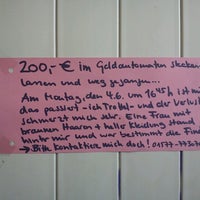 200,-€ im Geldautomaten stecken
lassen und weg gegangen...
Am Montag, den 4.6. um 16⁴⁵h ist mir
das passiert - ich Trottel - und der Verlust
schmerzt mich sehr. Eine Frau mit
braunen Haaren + helle Kleidung stand
hinter mir und war bestimmt die
→ Bitte kontaktiere mich doch! 01577-